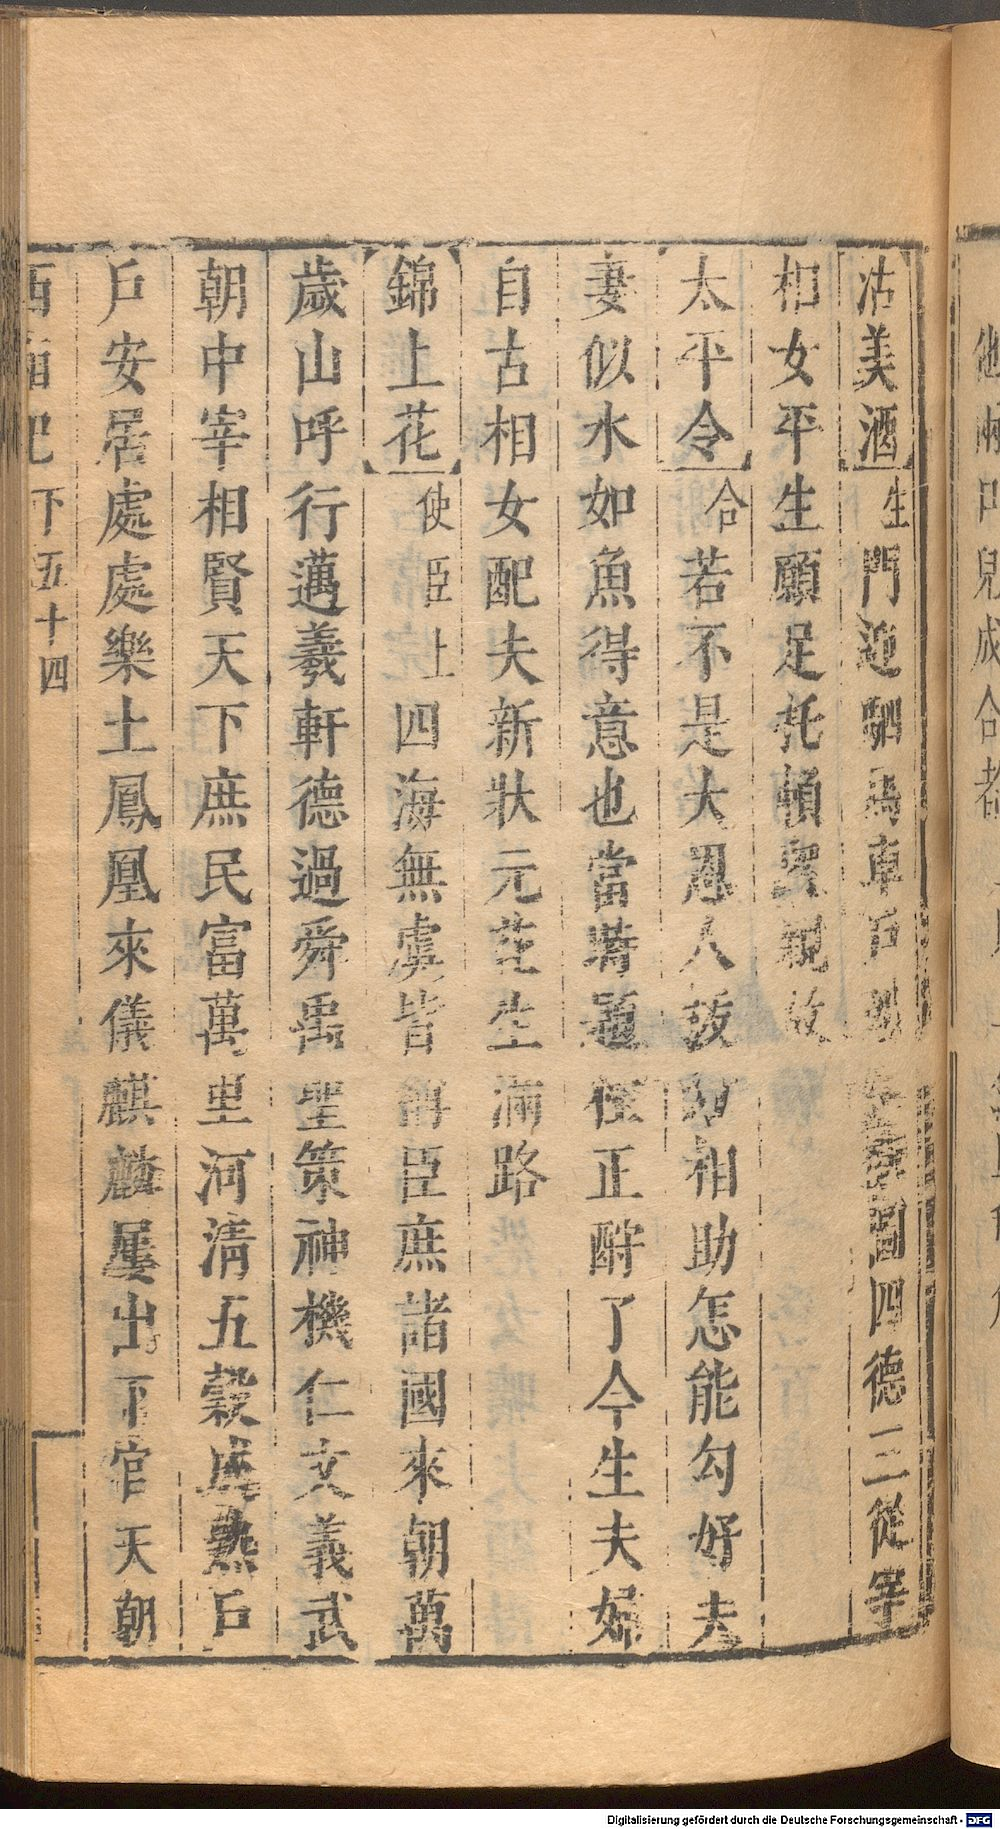 沽美酒生門迎駟馬車戶列八椒圖四德三從宰
相女平生願足托頼眾親故
太平令合若不是大恩人拔刀相助怎能勾好夫
妻似水如魚得意也當時題柱正酧了今生夫婦
自古相女配夫新狀元花生滿路
錦上花使臣上四海無虞皆稱臣庶諸國來朝萬
歲山呼行邁羲軒德過舜禹聖策神機仁文義武
朝中宰相賢天下庶民富萬里河清五穀成熟戶
戶安居處處樂土鳳凰來儀麒麟屢出下官天朝
西廂記 下五十四
Digitalisierung gefördert durch die Deutsche Forschungsgemeinschaft - DFG